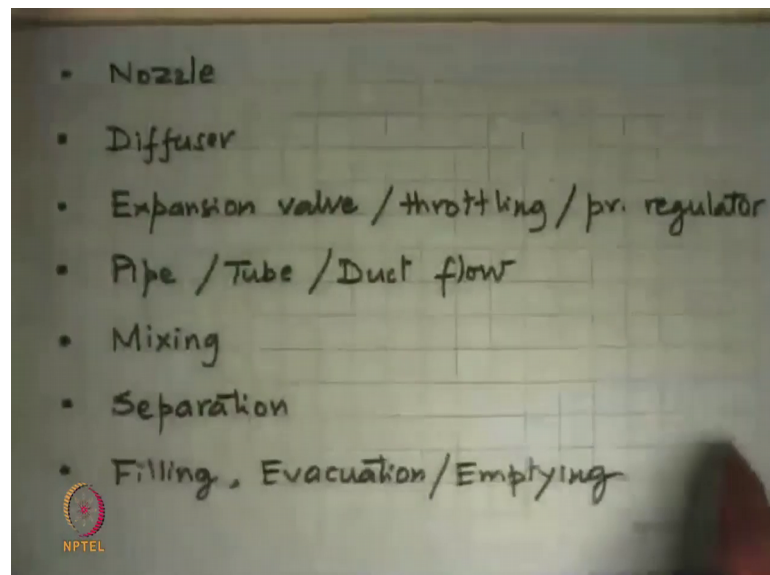 • Nozzle
• Diffuser
• Expansion valve / throttling / pr. regulator
• Pipe / Tube / Duct flow
• Mixing
• Separation
• Filling, Evacuation/Emptying
NPTEL